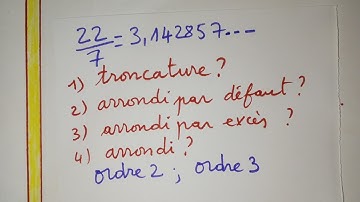 22/7 = 3,142857...
1) troncature ?
2) arrondi par défaut ?
3) arrondi par excès ?
4) arrondi ?
ordre 2 ; ordre 3